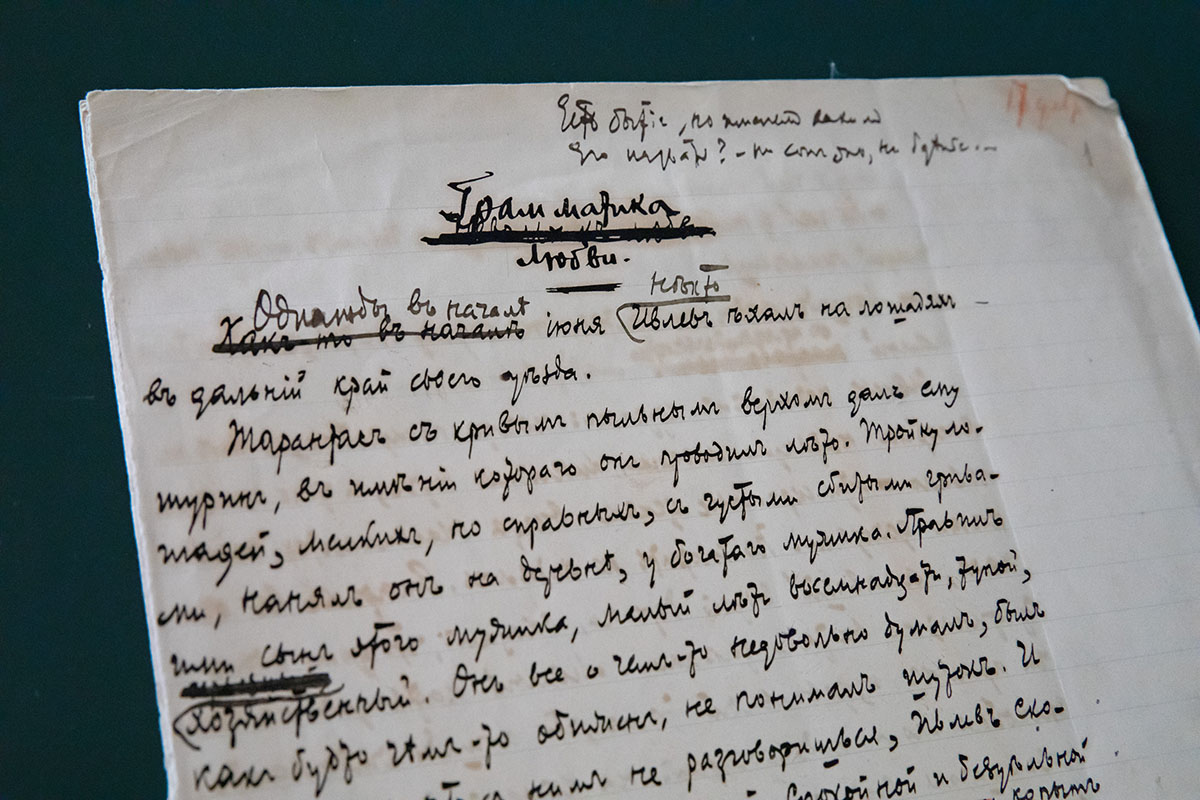 Есть бытіе, но именемъ какимъ
Его назвать? - ни сонъ оно, ни бдѣнье...
17 февр
Грамматика
Любви.
Однажды въ началѣ
нѣкто
Какъ то въ началѣ іюня Ивлевъ ѣхалъ на лошадяхъ
въ дальній край своего уѣзда.
Тарантасъ съ кривымъ пыльнымъ верхомъ далъ ему
шуринъ, въ имѣніи котораго онъ проводилъ лѣто. Тройку ло-
шадей, мелкихъ, но справныхъ, съ густыми сбитыми грива-
ми, нанялъ онъ на деревнѣ, у богатаго мужика. Правилъ
ими сынъ этого мужика, малый лѣтъ восемнадцати, тупой,
хозяйственный. Онъ все о чемъ-то недовольно думалъ, былъ
какъ будто чѣмъ-то обиженъ, не понималъ шутокъ. И
съ нимъ не разговоришься, Ивлевъ ско-
спокойной и безцѣльной
копытъ